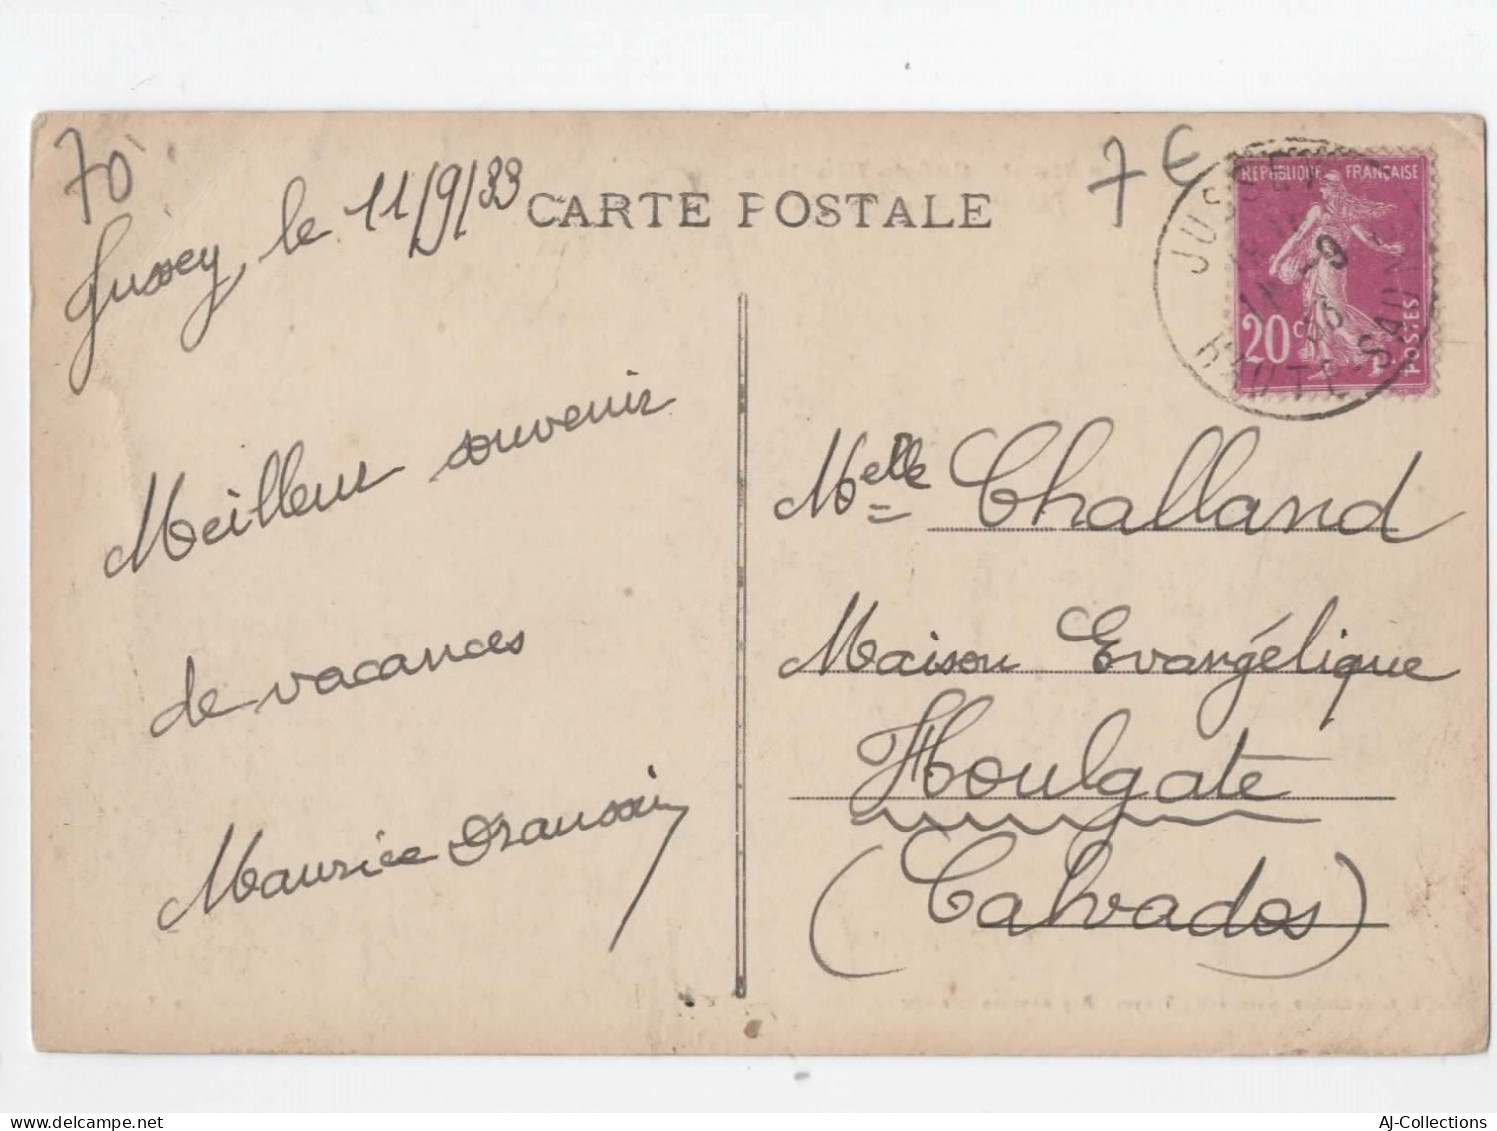 70
Jussey, le 11/9/33
CARTE POSTALE
7 €
JUSSEY
HAUTE-SAONE
RÉPUBLIQUE FRANÇAISE
20c
POSTES
Meilleur souvenir
de vacances
Maurice
Melle Challand
Maison Evangélique
Houlgate
(Calvados)
delcampe.net
AJ-Collections